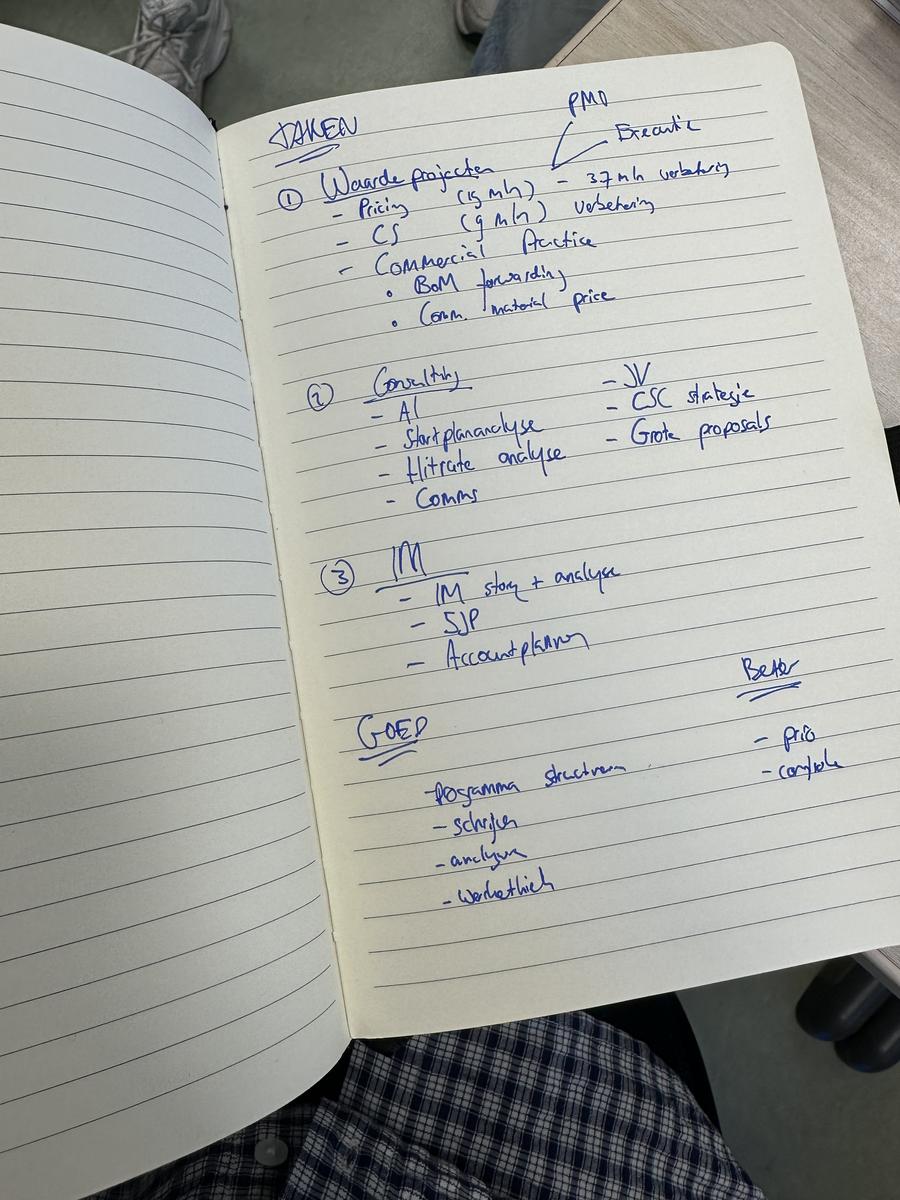 TAKEN
PMO
Executie
① Waarde projecten
- Pricing (15 mln) - 37 mln verbetering
- CS (9 mln) verbetering
- Commercial Practice
• BoM forwarding
• Comm. material price
② Consulting
- AI
- Startplananalyse
- Hitrate analyse
- Comms
- JV
- CSC strategie
- Grote proposals
③ IM
- IM story + analyse
- SJP
- Accountplanning
GOED
Programma structuren
- schrijven
- analyse
- werkethiek
Beter
- prio
- controle